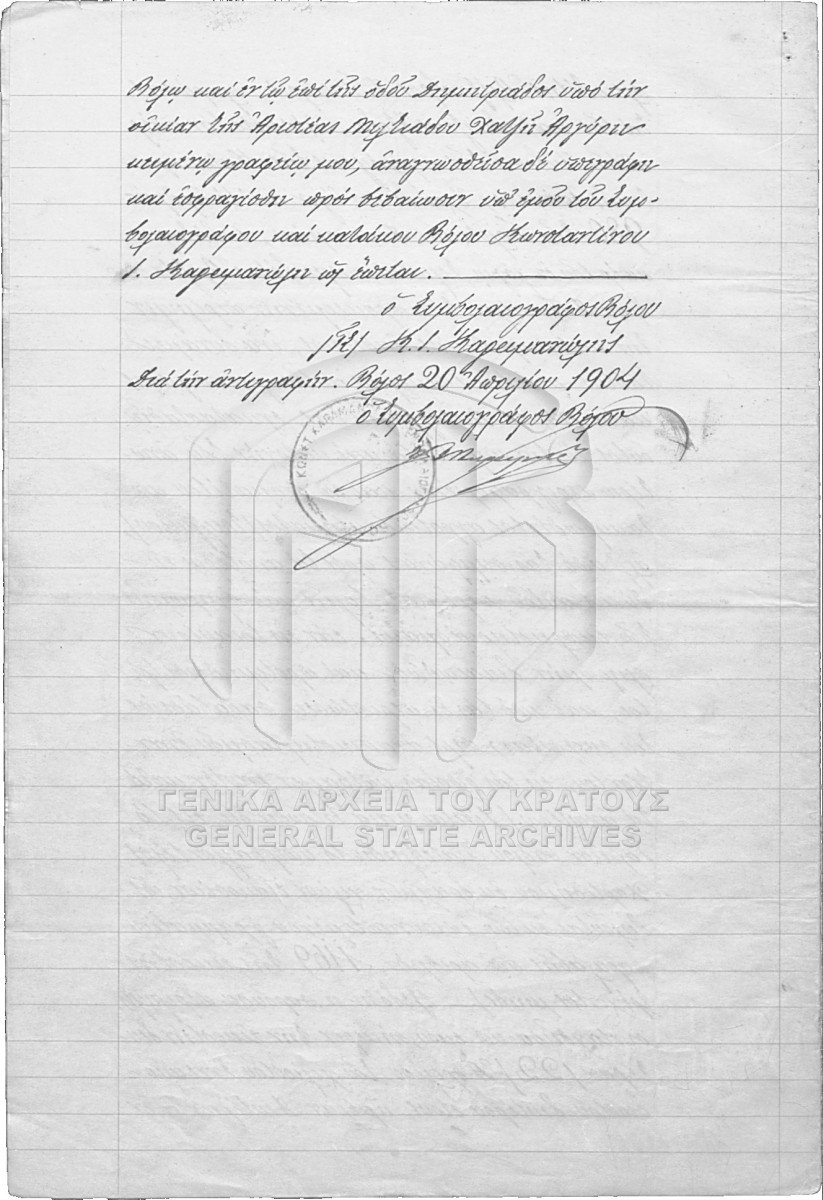 Βόλῳ καὶ ἐν τῷ ἐπὶ τῆς ὁδοῦ Δημητριάδος ὑπὸ τὴν
οἰκίαν τῆς Ἀριστέας Μιλτιάδου Χατζῆ Ἀργύρη
κειμένῳ γραφείῳ μου, ἀναγνωσθεῖσα δὲ ὑπεγράφη
καὶ ἐσφραγίσθη πρὸς βεβαίωσιν ὑπ' ἐμοῦ τοῦ Συμ-
βολαιογράφου καὶ κατοίκου Βόλου Κωνσταντίνου
Ι. Καραμανώλη ὡς ἕπεται.
ὁ Συμβολαιογράφος Βόλου
/ΤΣ/ Κ. Ι. Καραμανώλης
Διὰ τὴν ἀντιγραφήν. Βόλος 20 Ἀπριλίου 1904
ὁ Συμβολαιογράφος Βόλου
ΓΕΝΙΚΑ ΑΡΧΕΙΑ ΤΟΥ ΚΡΑΤΟΥΣ
GENERAL STATE ARCHIVES